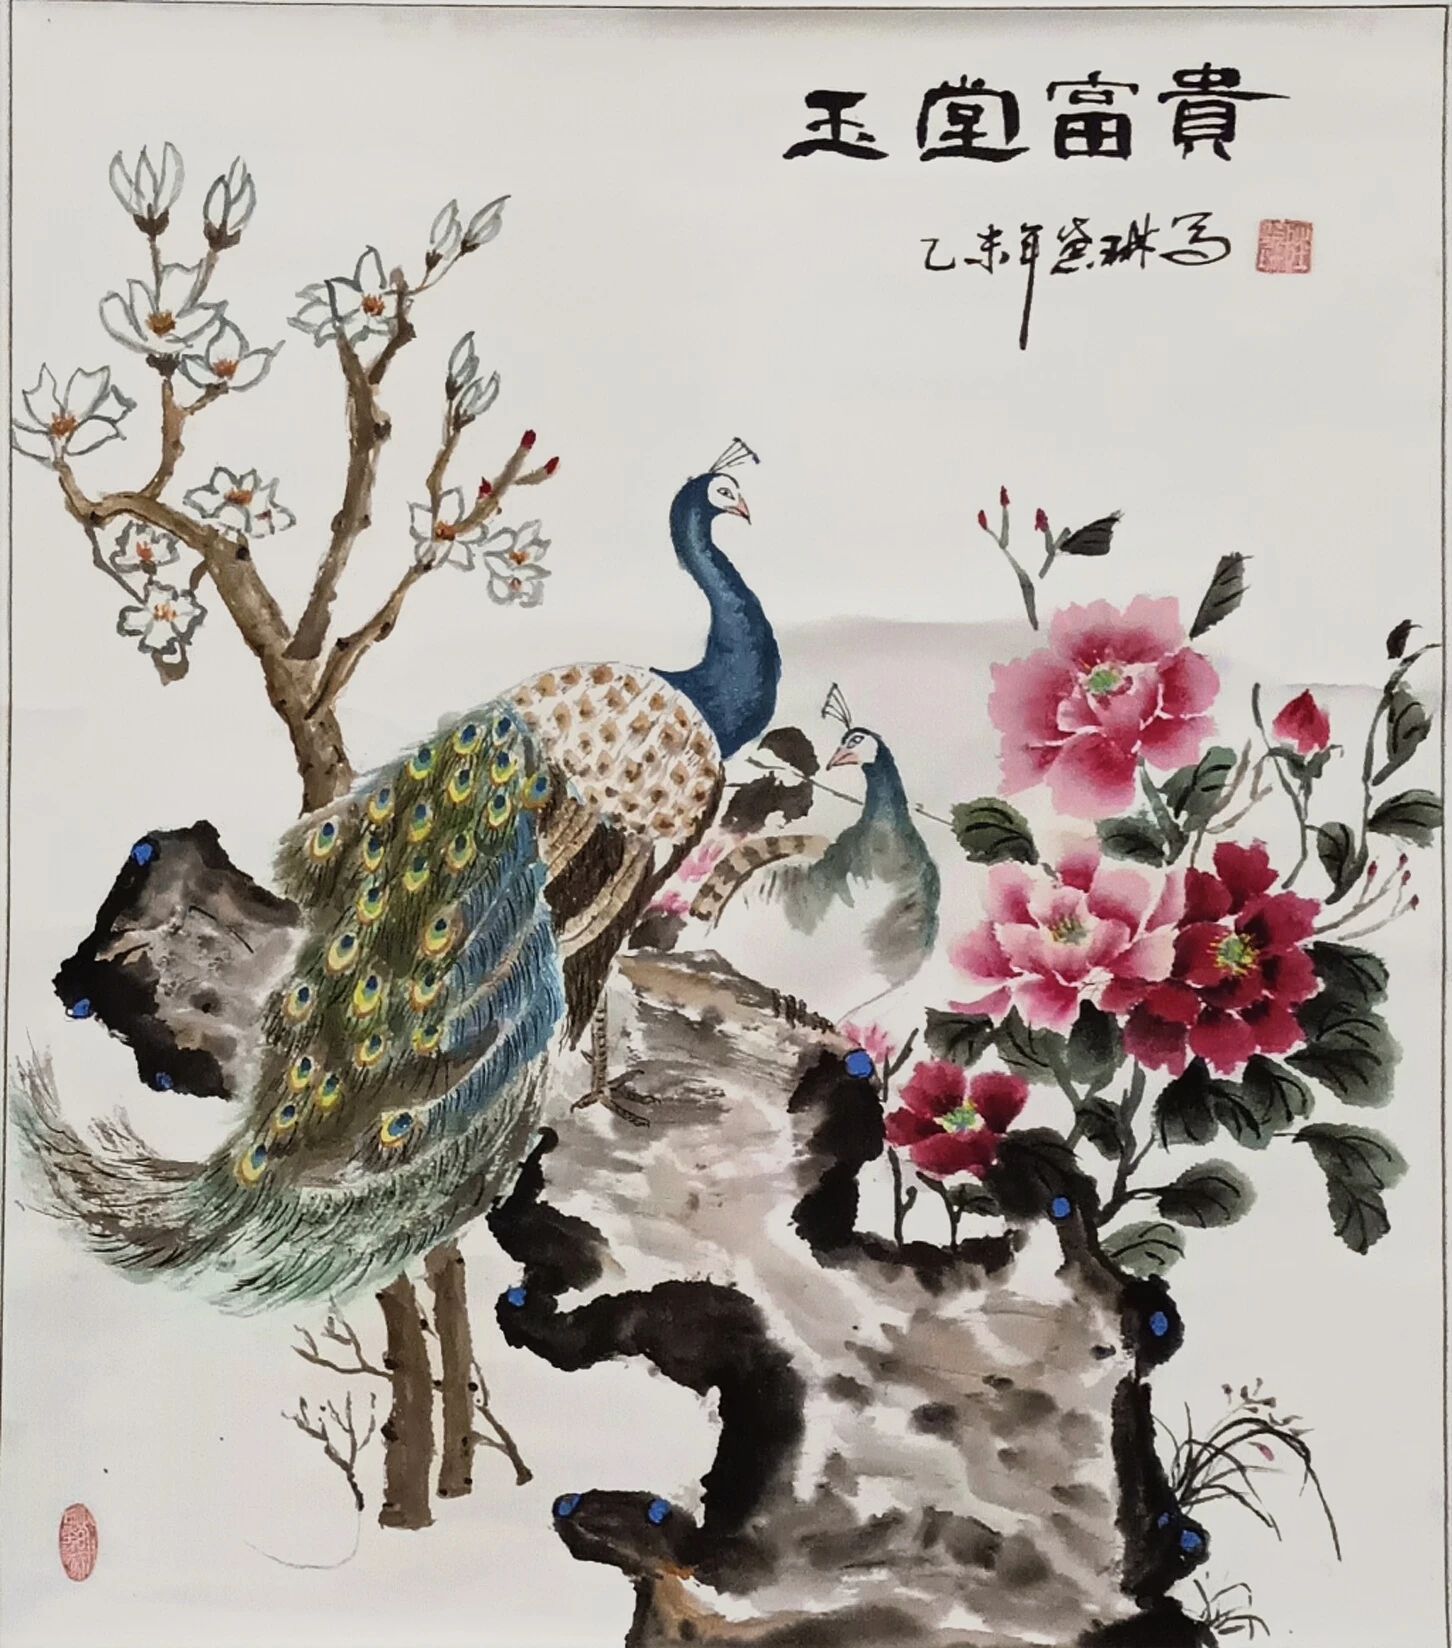 玉堂富貴
乙未年黛琳写